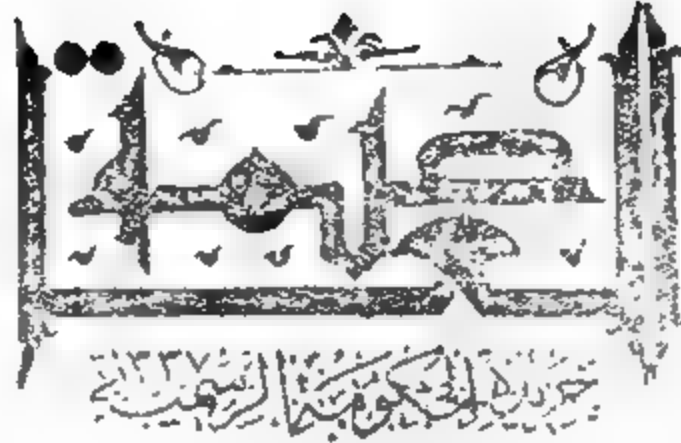 العاصمة
جريدة الحكومة الرسمية ١٣٣٧